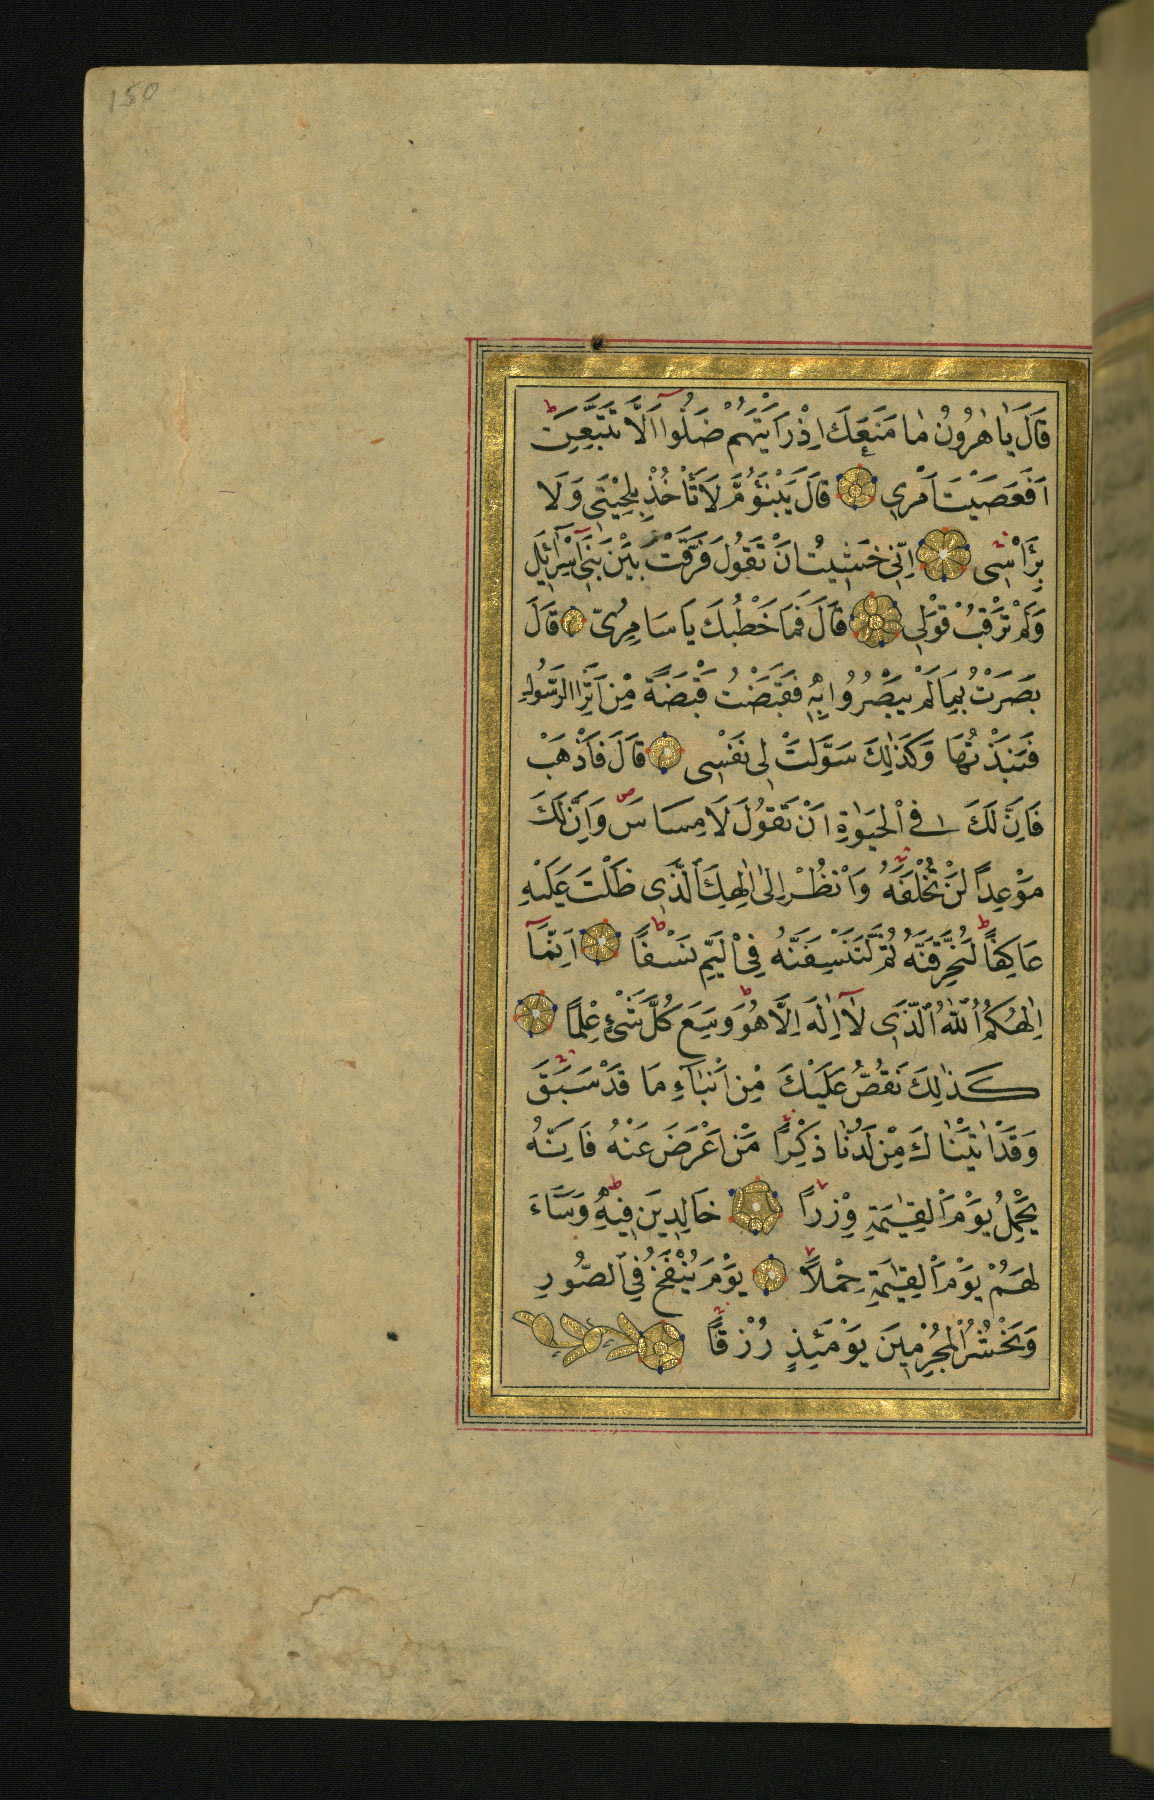 150
قَالَ يَا هٰرُونُ مَا مَنَعَكَ اِذْ رَاَيْتَهُمْ ضَلُّوا اَلَّا تَتَّبِعَنِ ط
اَفَعَصَيْتَ اَمْرِي قَالَ يَبْنَؤُمَّ لَا تَاْخُذْ بِلِحْيَتِي وَلَا
بِرَأْسِي اِنِّي خَشِيتُ اَنْ تَقُولَ فَرَّقْتَ بَيْنَ بَنِي اِسْرَائِيلَ
وَلَمْ تَرْقُبْ قَوْلِي قَالَ فَمَا خَطْبُكَ يَا سَامِرِيُّ قَالَ
بَصُرْتُ بِمَا لَمْ يَبْصُرُوا بِهِ فَقَبَضْتُ قَبْضَةً مِنْ اَثَرِ الرَّسُولِ
فَنَبَذْتُهَا وَكَذٰلِكَ سَوَّلَتْ لِي نَفْسِي قَالَ فَاذْهَبْ
فَاِنَّ لَكَ فِي الْحَيٰوةِ اَنْ تَقُولَ لَا مِسَاسَ ص وَاِنَّ لَكَ
مَوْعِدًا لَنْ تُخْلَفَهُ وَانْظُرْ اِلٰى اِلٰهِكَ الَّذِي ظَلْتَ عَلَيْهِ
عَاكِفًا ط لَنُحَرِّقَنَّهُ ثُمَّ لَنَنْسِفَنَّهُ فِي الْيَمِّ نَسْفًا ط اِنَّمَا
اِلٰهُكُمُ اللّٰهُ الَّذِي لَا اِلٰهَ اِلَّا هُوَ ط وَسِعَ كُلَّ شَيْءٍ عِلْمًا
كَذٰلِكَ نَقُصُّ عَلَيْكَ مِنْ اَنْبَاءِ مَا قَدْ سَبَقَ
وَقَدْ اٰتَيْنَاكَ مِنْ لَدُنَّا ذِكْرًا مَنْ اَعْرَضَ عَنْهُ فَاِنَّهُ
يَحْمِلُ يَوْمَ الْقِيٰمَةِ وِزْرًا خَالِدِينَ فِيهِ ط وَسَاءَ
لَهُمْ يَوْمَ الْقِيٰمَةِ حِمْلًا يَوْمَ يُنْفَخُ فِي الصُّورِ
وَنَحْشُرُ الْمُجْرِمِينَ يَوْمَئِذٍ زُرْقًا